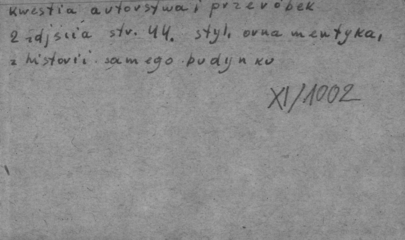 kwestia autorstwa i przeróbek
2 zdjęcia str. 44. styl, ornamentyka,
z historii samego budynku
XI/1002